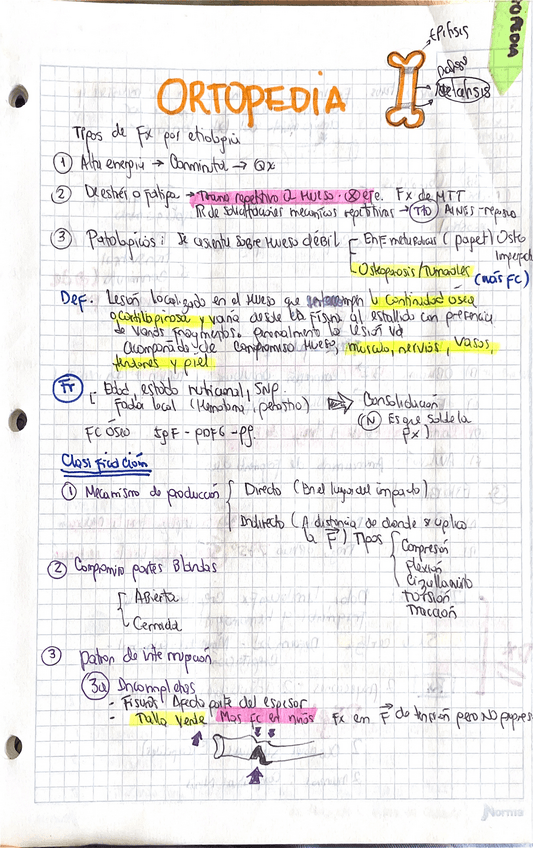 OPEDIA
Epifisis
ORTOPEDIA
Tipos de Fx por etiologia
① Alta energia → Conminuta → Qx
② De estrés o fatiga → Trauma repetitivo a Hueso. Fx de MTT
mecanicas repetitivas → Tto AINES - reposo
③ Patologicos: Se asienta sobre Hueso débil
Enf metabolicas (paget) Osteo
Imperfecta
Osteoporosis/Tumorales (más FC)
Def. Lesión localizada en el Hueso que interrumpe la continuidad osea
o cartilaginosa y varia desde la fisura al estallido con presencia
de varios fragmentos. Normalmente la lesión va
acompañada de compromiso Hueso, musculo, nervios, vasos,
tendones y piel
Fr
Edad, estado nutricional, SNP.
Factor local (Hematoma, periostio)
Consolidación
(N) Es que solde la
Fx)
FC óseo
Clasificación
① Mecanismo de producción
Directo (En el lugar del impacto)
Indirecto (A distancia de donde se aplico
la F) Tipos
Compresión
Flexión
Cizallamiento
Torsión
Tracción
② Compromiso partes Blandas
Abierta
Cerrada
③ Patron de interrupción
3a Incompletas
- Fisuras Afecta parte del espesor
- Tallo Verde Mas FC en niños Fx en F de tensión pero NO
Norma